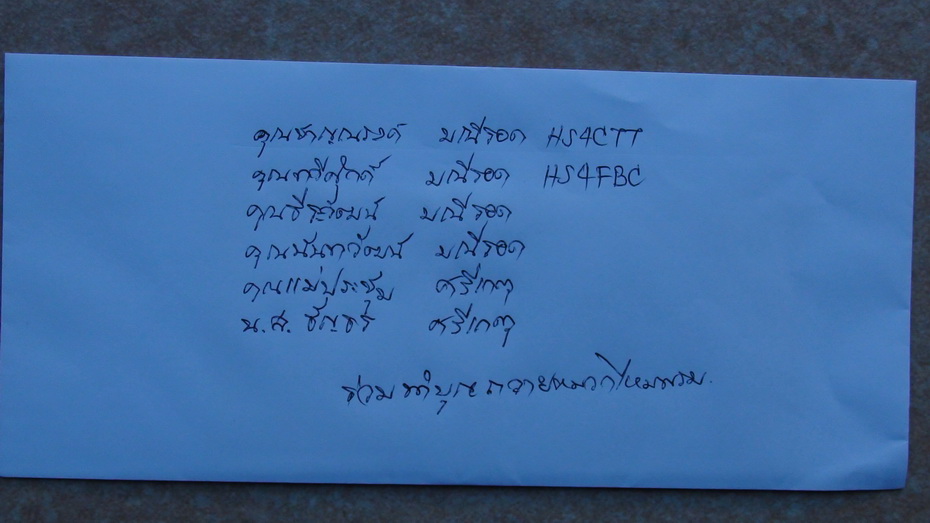 คุณชาญณรงค์ มณีรอด HS4CTT
คุณทวีศักดิ์ มณีรอด HS4FBC
คุณธีรวัฒน์ มณีรอด
คุณนันทวัฒน์ มณีรอด
คุณแม่ประชุม ศรีเกตุ
น.ส. ศรีเกตุ
ร่วมทำบุญถวายหมวกไหมพรม.